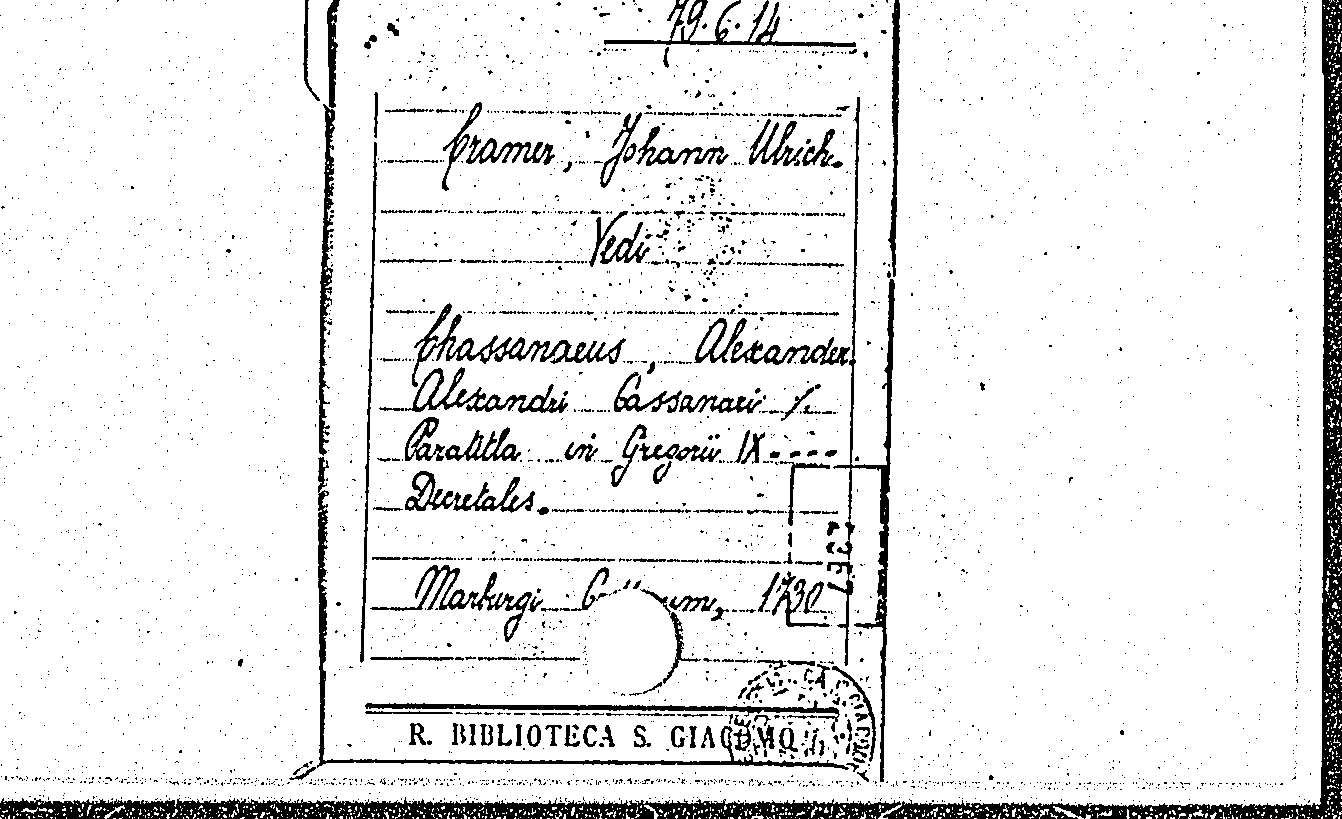 79.6.14
Cramer, Johann Ulrich.
Vedi
Chassanaeus, Alexander.
Alexandri Cassanaei /.
Paratitla in Gregorii IX----
Decretales.
Marburgi 1730
R. BIBLIOTECA S. GIACOMO